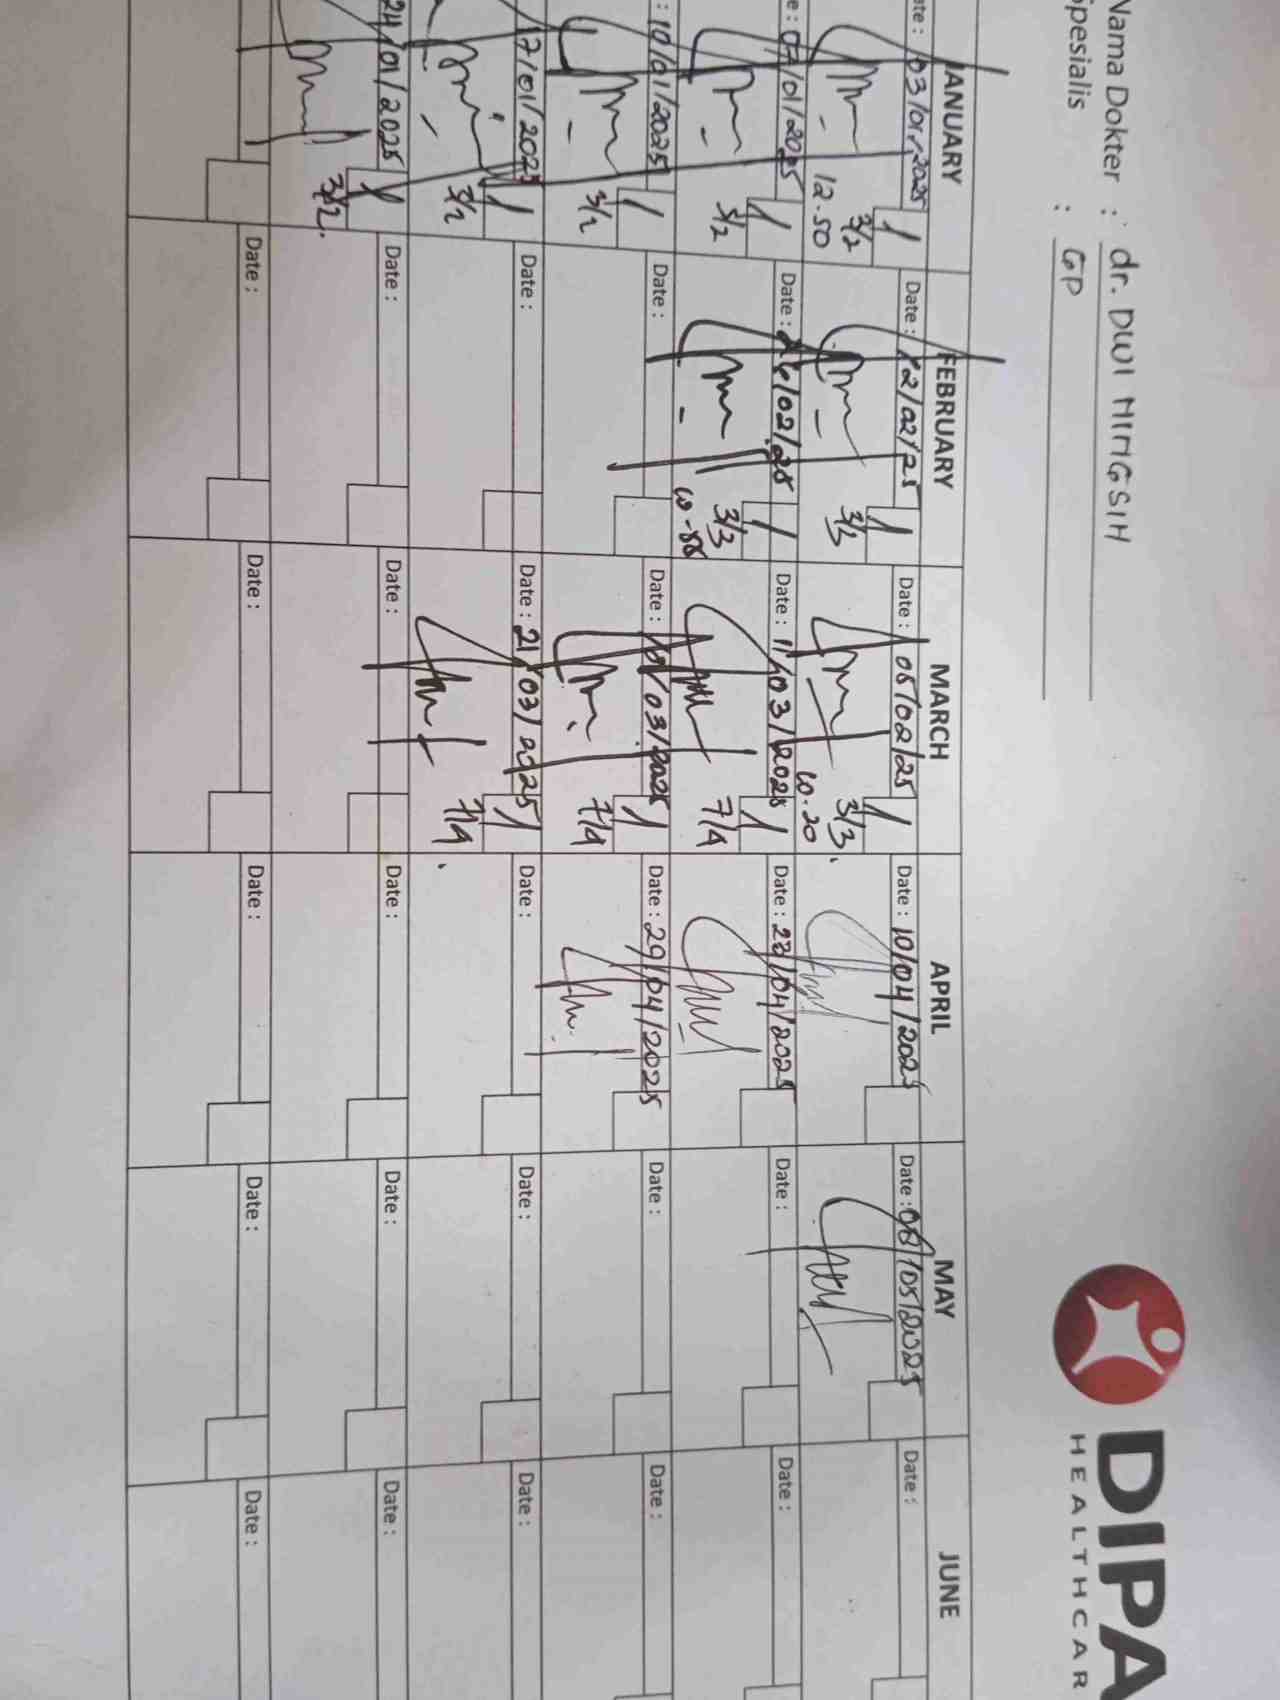 DIPA
HEALTHCAR
Nama Dokter : dr. DWI NINGSIH
Spesialis : GP
JANUARY FEBRUARY MARCH APRIL MAY JUNE
ate : 03/01/2025 Date : 12/02/25 Date : 05/02/25 Date : 10/04/2025 Date : 08/05/2025 Date :
3/2 3/3 3/3
12.50 10.20
e : 07/01/2025 Date : 26/02/25 Date : 11/03/2025 Date : 23/04/2025 Date : Date :
3/2 3/3 7/4
: 10/01/2025 Date : Date : /03/2025 Date : 29/04/2025 Date : Date :
3/2 7/4
17/01/2025 Date : Date : 21/03/2025 Date : Date : Date :
3/2 7/4
24/01/2025 Date : Date : Date : Date : Date :
3/2
Date : Date : Date : Date : Date :